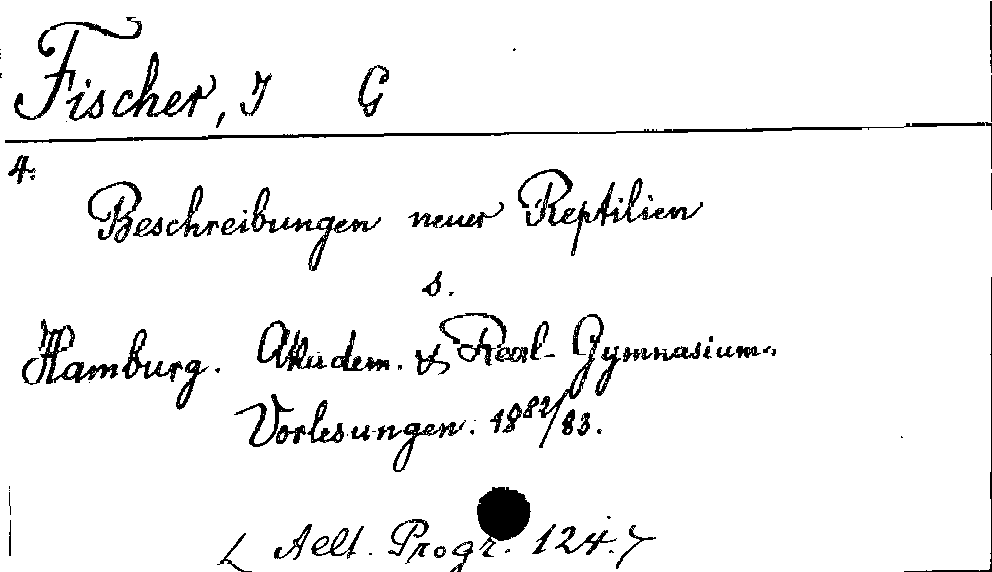 Fischer, J G
4:
Beschreibungen neuer Reptilien
s.
Hamburg. Akadem. & Real-Gymnasium.
Vorlesungen. 1882/83.
[ Aelt. Progr. 124. ]